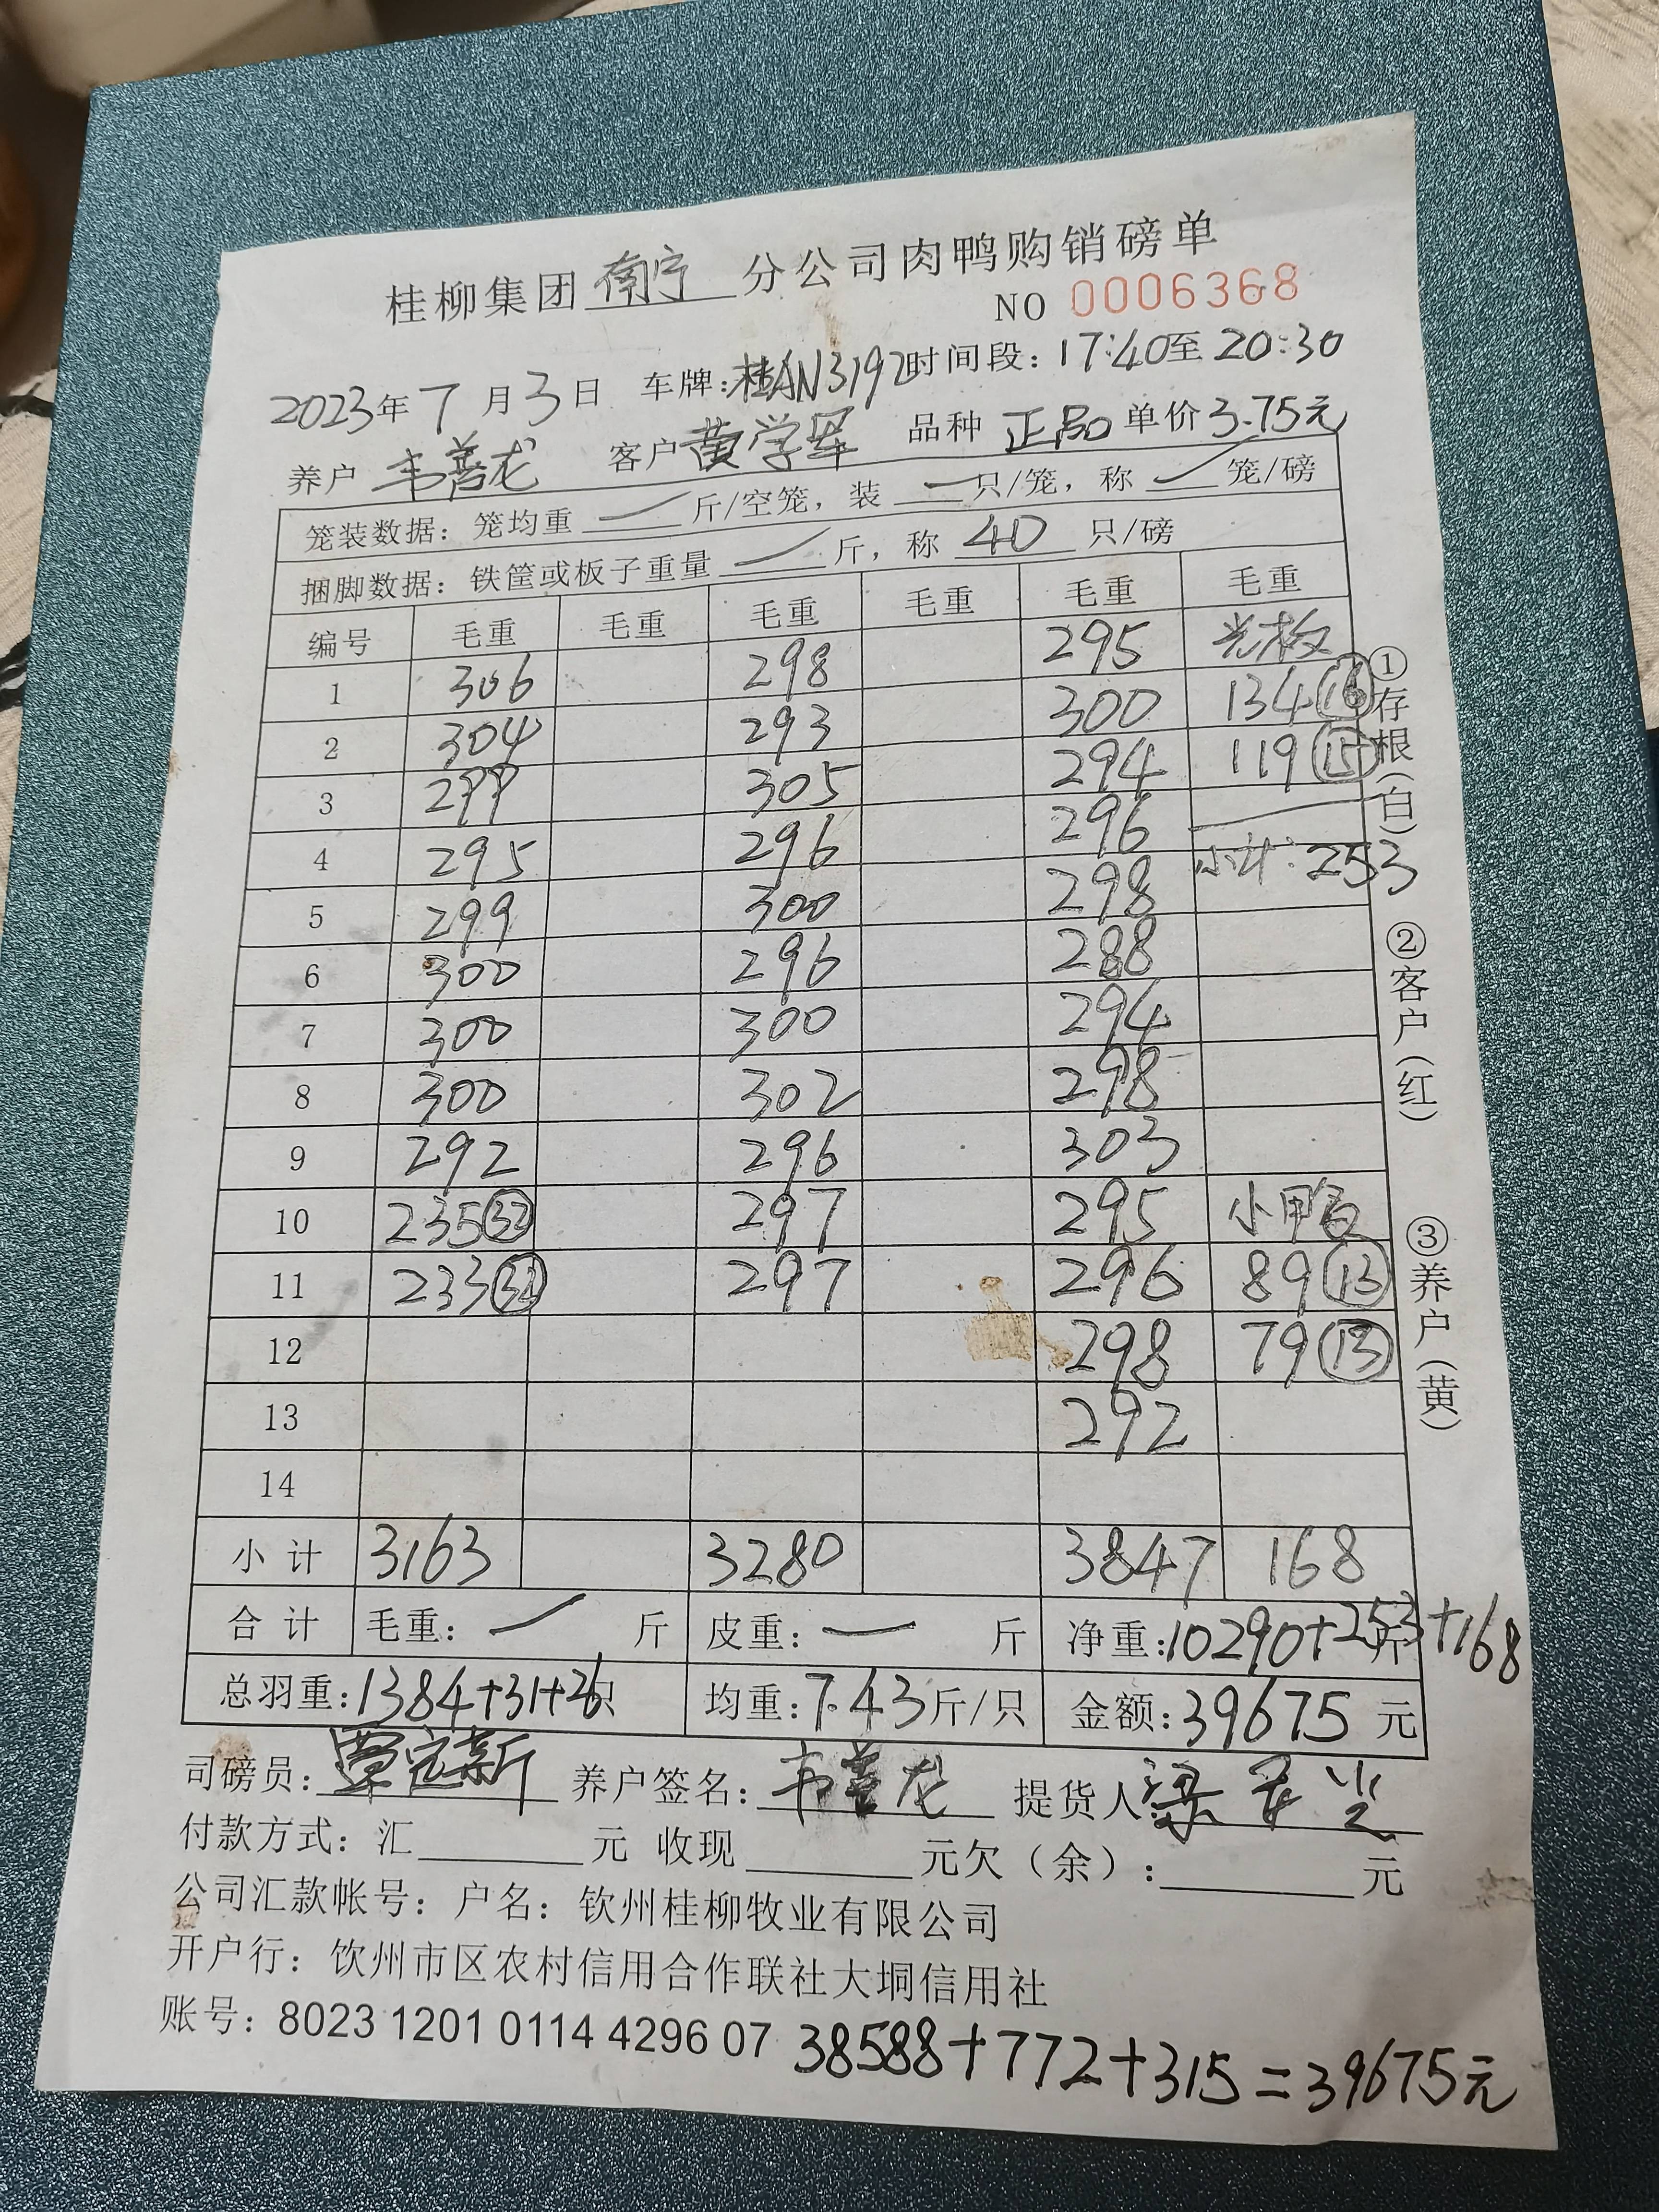 桂柳集团南宁分公司肉鸭购销磅单
NO 0006368
2023年7月3日 车牌:桂AN3192 时间段:17:40至20:30
养户 韦善龙 客户 黄学军 品种 正品 单价 3.75元
笼装数据:笼均重 — 斤/空笼,装 — 只/笼,称 — 笼/磅
捆脚数据:铁筐或板子重量 — 斤,称 40 只/磅
编号 毛重 毛重 毛重 毛重 毛重 毛重
1 306 298 295 光板
2 304 293 300 134⑯
3 299 305 294 119⑮
4 295 296 296
5 299 300 298 小计:253
6 300 296 288
7 300 300 294
8 300 302 298
9 292 296 303
10 235㉜ 297 295 小鸭
11 233㉜ 297 296 89⑬
12 298 79⑬
13 292
14
小计 3163 3280 3847 168
合计 毛重: — 斤 皮重: — 斤 净重:10290+253+168斤
总羽重:1384+31+26只 均重:7.43斤/只 金额:39675元
司磅员: 覃 新 养户签名:韦善龙 提货人 梁
付款方式:汇 元 收现 元欠(余): 元
公司汇款帐号:户名:钦州桂柳牧业有限公司
开户行:钦州市区农村信用合作联社大垌信用社
账号:8023 1201 0114 4296 07
38588+772+315=39675元
①存根(白) ②客户(红) ③养户(黄)